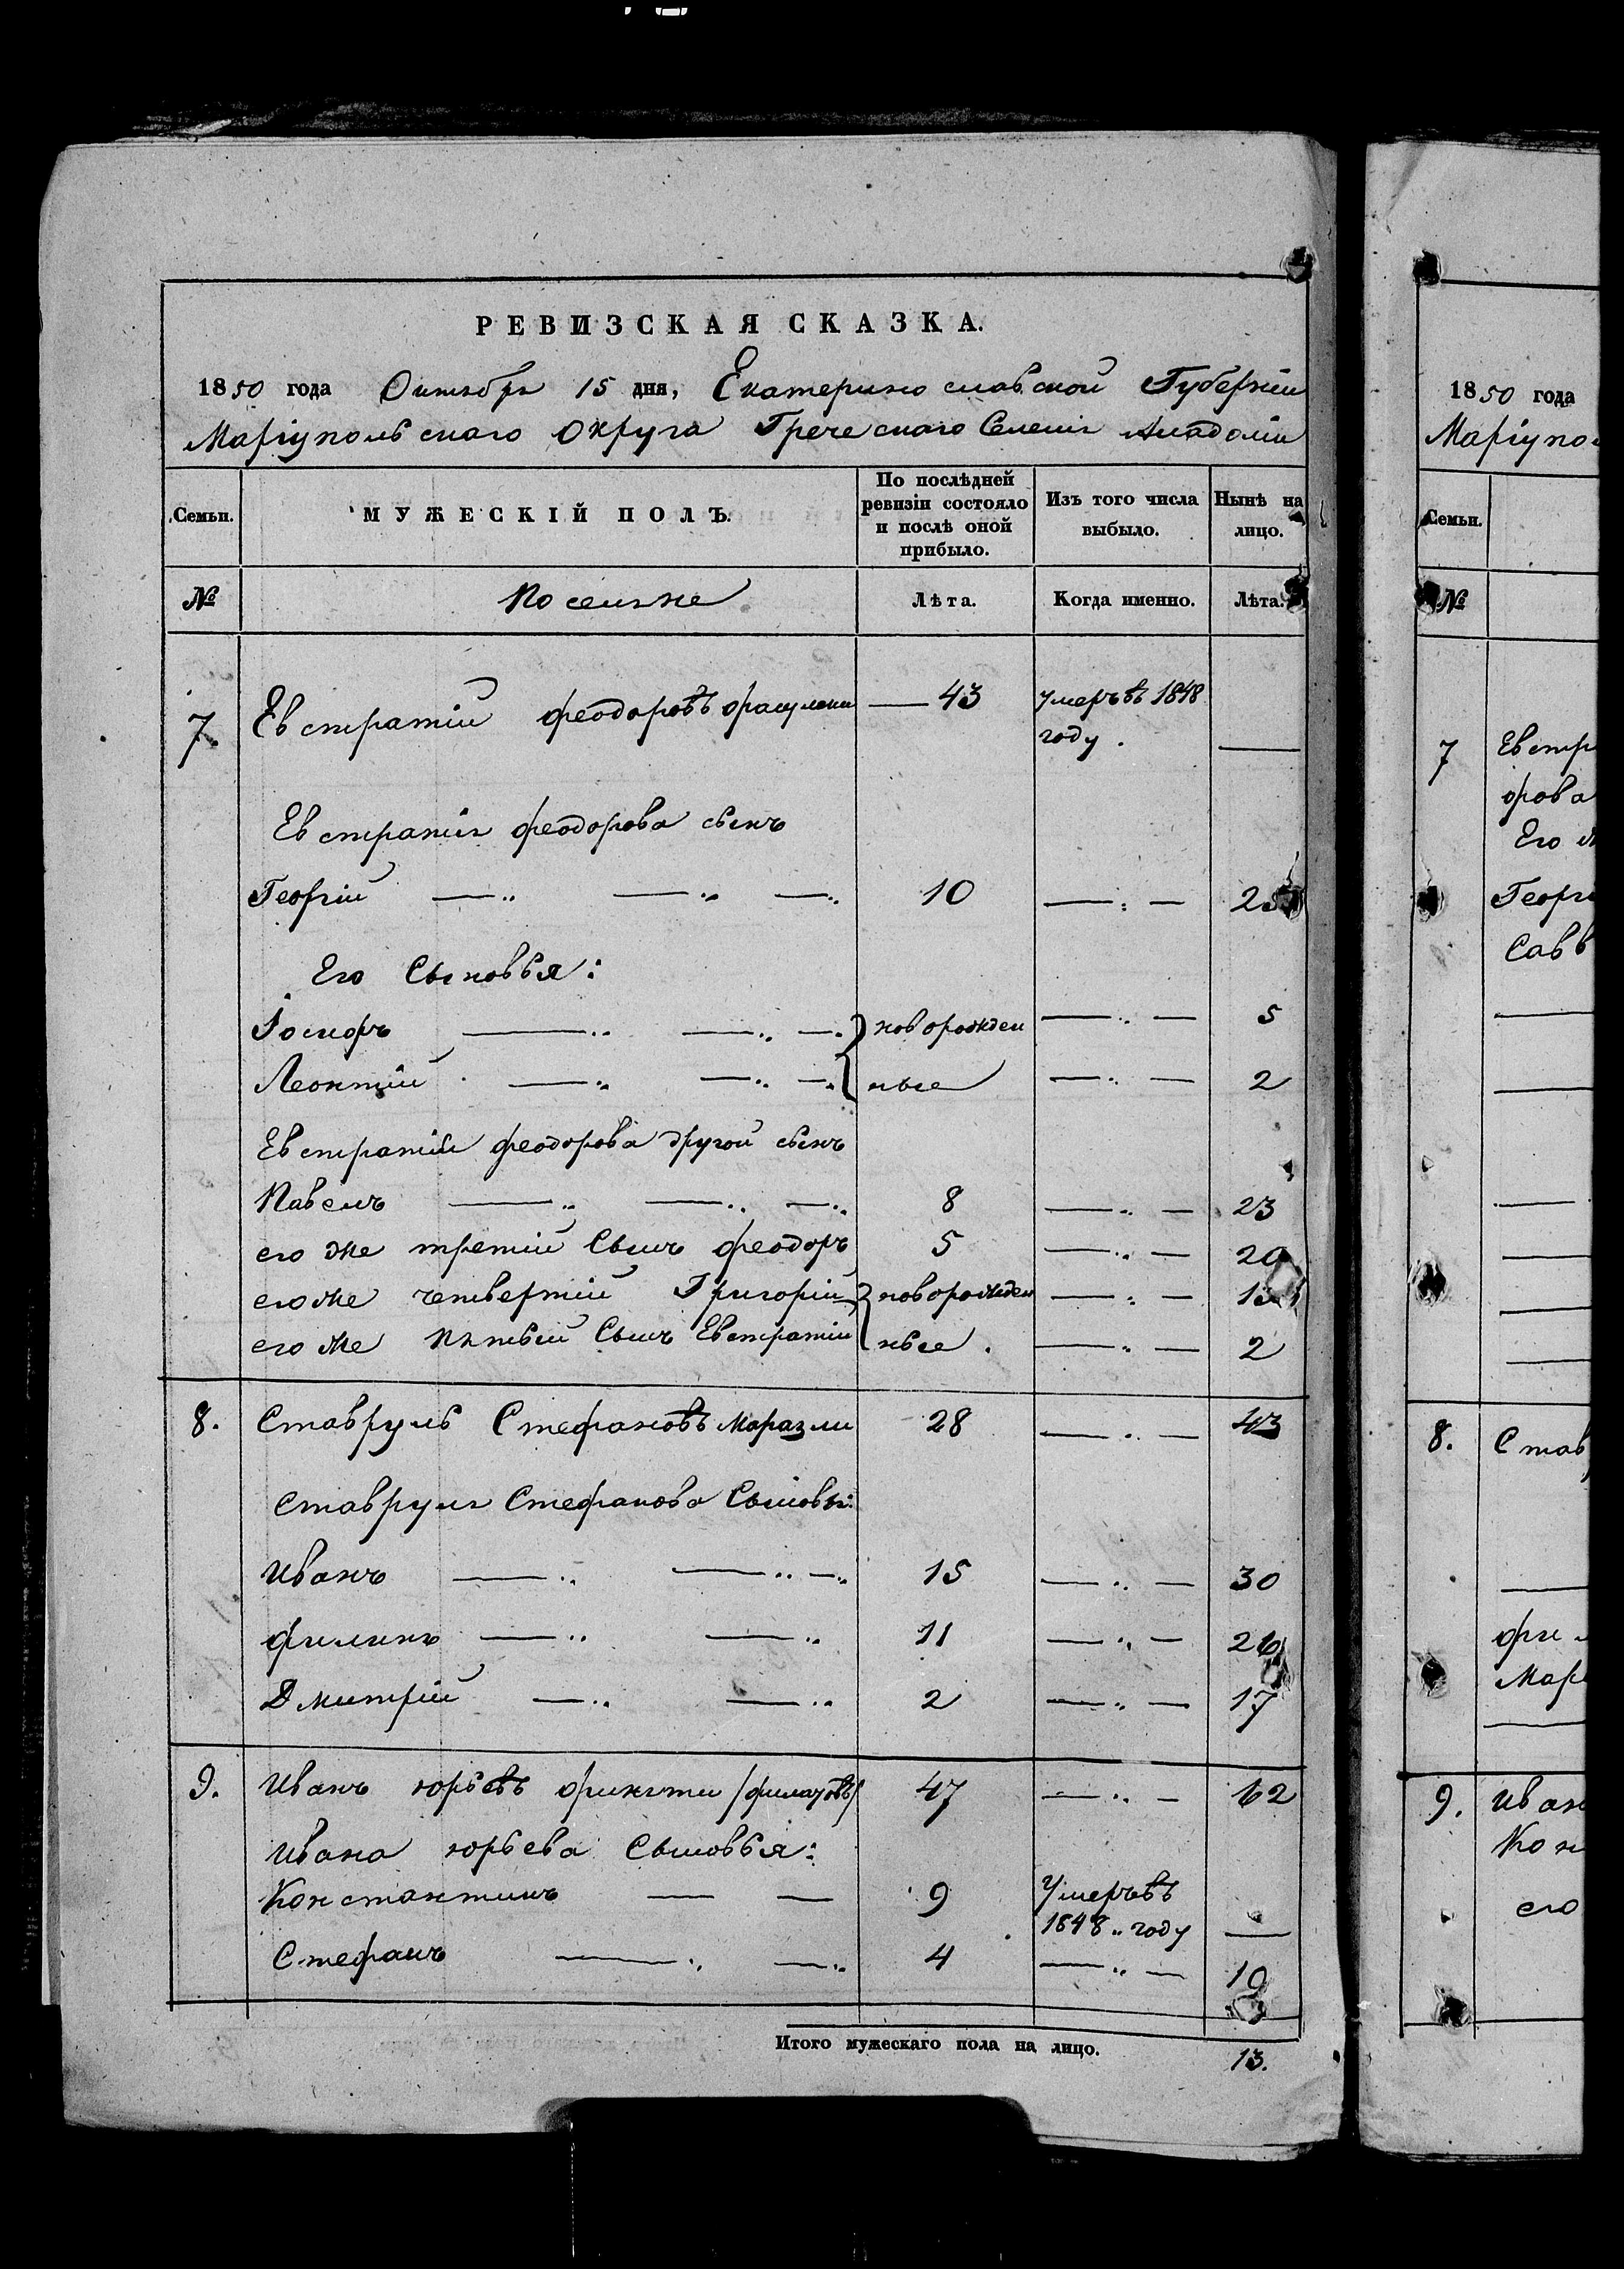 РЕВИЗСКАЯ СКАЗКА.
1850 года Октября 15 дня, Екатеринославской Губерніи
Маріупольскаго Округа Греческаго Селенія Анадоліи
Семьи. МУЖЕСКІЙ ПОЛЪ. По послѣдней ревизіи состояло и послѣ оной прибыло. Изъ того числа выбыло. Нынѣ на лицо.
№ Поселяне Лѣта. Когда именно. Лѣта.
7. Евстратій Феодоровъ 43 умеръ въ 1848
году. —
Евстратія Феодорова сынъ
Георгій —„ —„ —„ 10 —„— 25
Его Сыновья:
Іосифъ —„ —„ —„ новорожден —„— 5
Леонтій —„ —„ —„ ные —„— 2
Евстратія Феодорова другой сынъ
Павелъ —„ —„ —„ 8 —„— 23
его же третій Сынъ Феодоръ 5 —„— 20
его же четвертій Григорій новорожден —„—
его же пятый Сынъ Евстратій ные. —„— 2
8. Ставруль Стефановъ Маразли 28 —„— 43
Ставруля Стефанова Сыновья:
Иванъ —„ —„ —„ 15 —„— 30
Филипъ —„ —„ 11 —„— 26
Дмитрій —„ —„ 2 —„— 17
9. Иванъ Юрьевъ 47 —„— 62
Ивана Юрьева Сыновья:
Константинъ — — 9 Умеръ въ
1848„ году —
Стефанъ —„ —„ 4 —„— 19
Итого мужескаго пола на лицо. 13.
1850 года
Маріупо
Семьи.
№
7 Евстр
орова
Его
Георг
Савв
8. Став
Фи
Мар
9. Иван
Кон
его